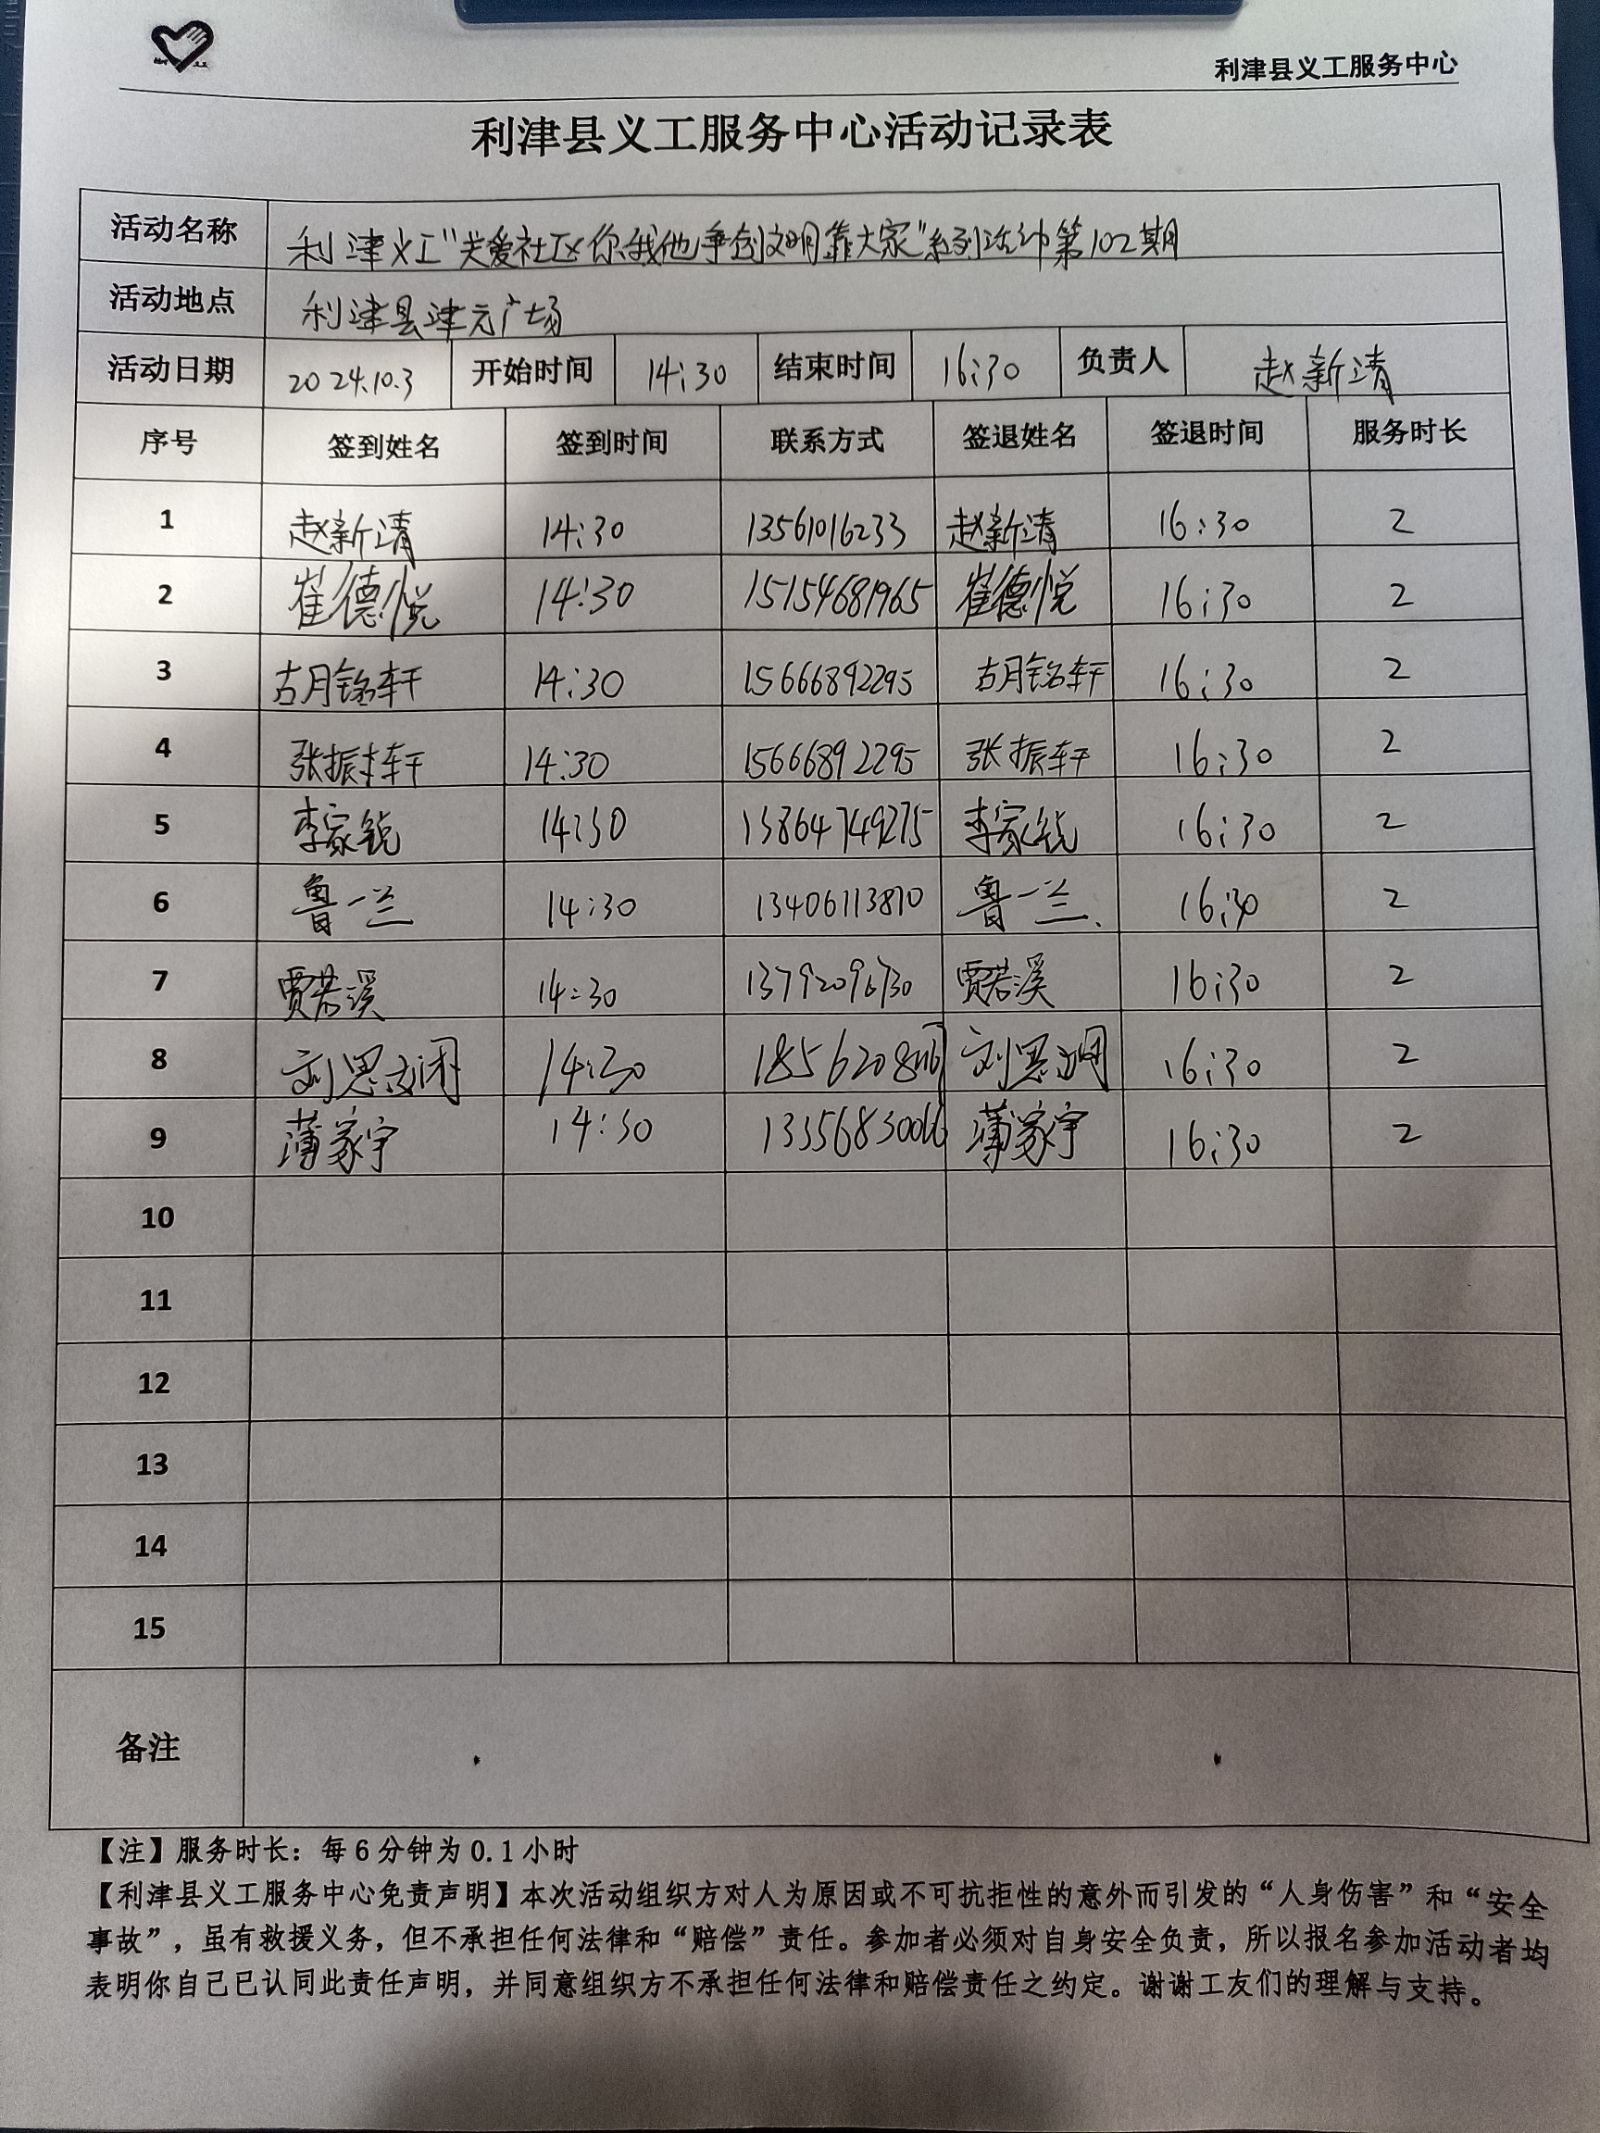 利津县义工服务中心
利津县义工服务中心活动记录表
活动名称 利津义工“关爱社区你我他争创文明靠大家”系列活动第102期
活动地点 利津县津元广场
活动日期 2024.10.3 开始时间 14:30 结束时间 16:30 负责人 赵新清
序号 签到姓名 签到时间 联系方式 签退姓名 签退时间 服务时长
1 赵新清 14:30 13561016233 赵新清 16:30 2
2 崔德悦 14:30 15154681965 崔德悦 16:30 2
3 胡铭轩 14:30 15666892295 胡铭轩 16:30 2
4 张振轩 14:30 15666892295 张振轩 16:30 2
5 李家锐 14:30 13864749275 李家锐 16:30 2
6 鲁一兰 14:30 13406113810 鲁一兰 16:30 2
7 贾若溪 14:30 贾若溪 16:30 2
8 刘思文 14:30 刘思 16:30 2
9 薄家宇 14:30 薄家宇 16:30 2
10
11
12
13
14
15
备注
【注】服务时长：每6分钟为0.1小时
【利津县义工服务中心免责声明】本次活动组织方对人为原因或不可抗拒性的意外而引发的“人身伤害”和“安全
事故”，虽有救援义务，但不承担任何法律和“赔偿”责任。参加者必须对自身安全负责，所以报名参加活动者均
表明你自己已认同此责任声明，并同意组织方不承担任何法律和赔偿责任之约定。谢谢工友们的理解与支持。